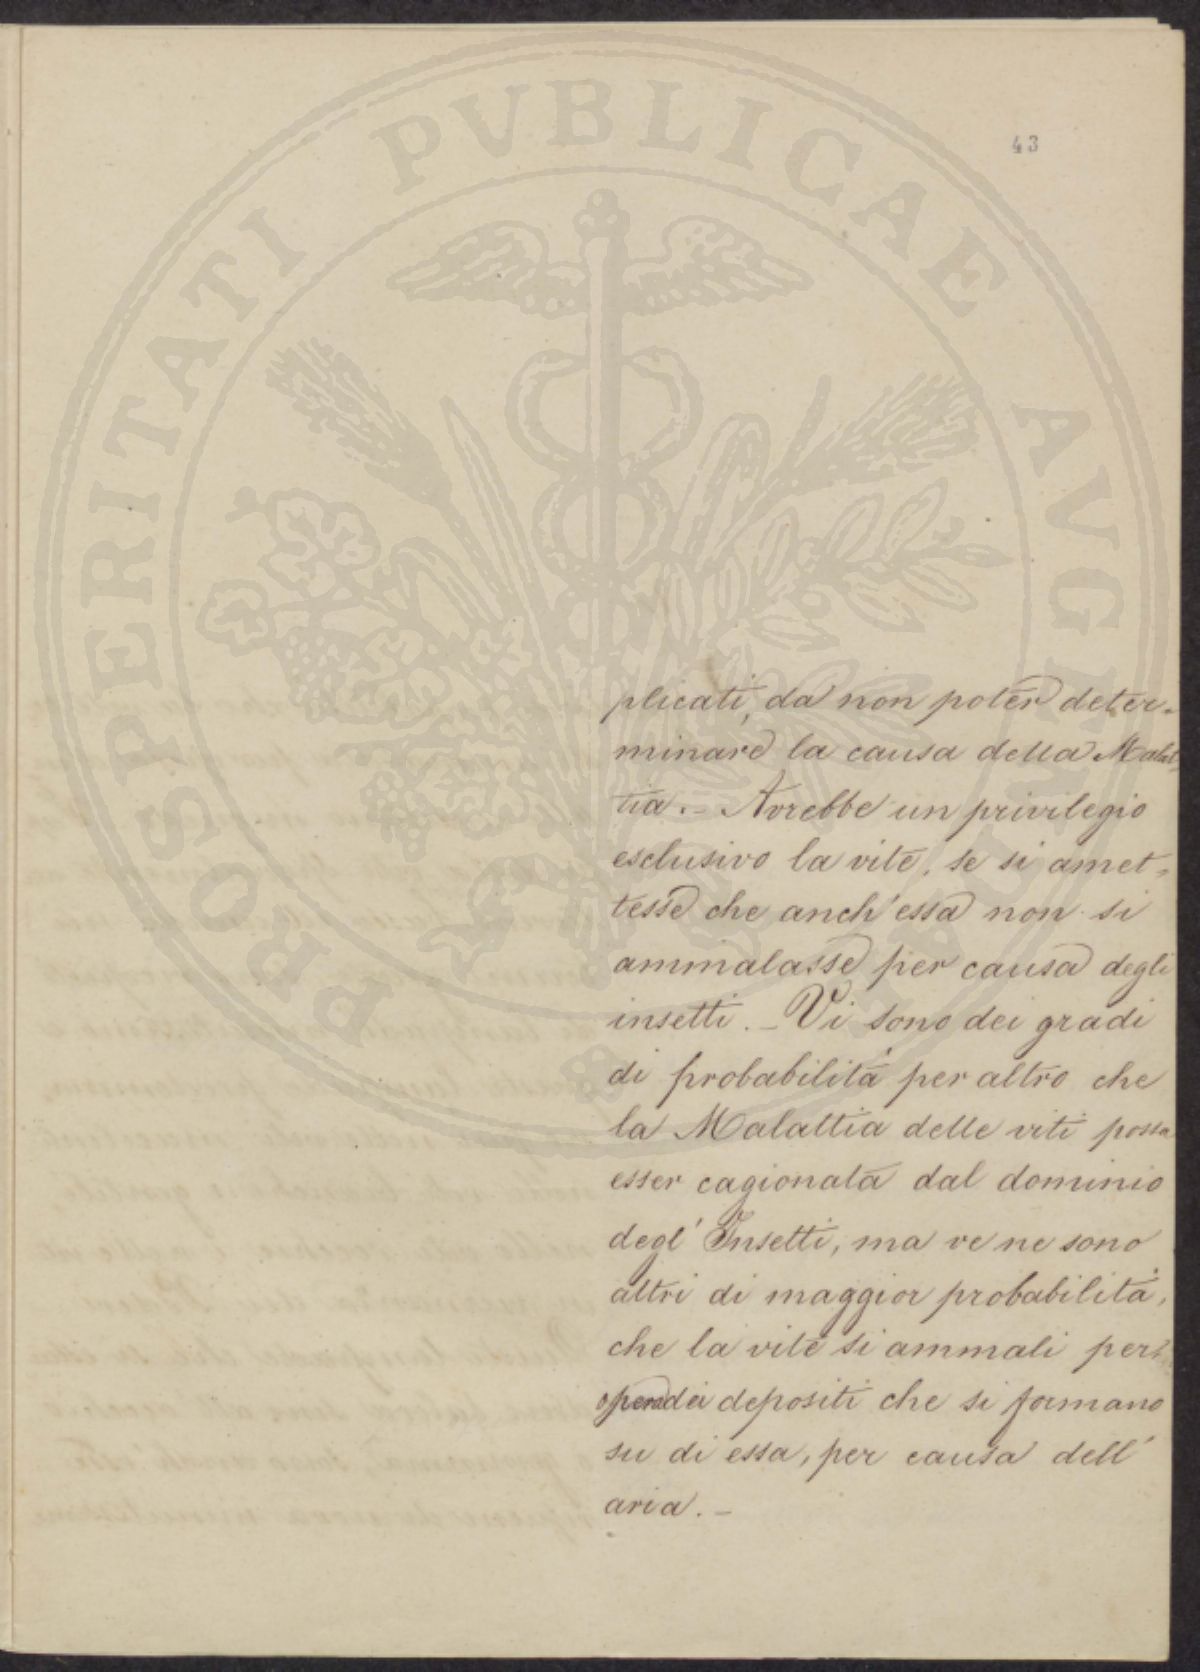 PROSPERITATI PUBLICAE AVGENDAE
43
plicati, da non poter deter-
minare la causa della Malat-
tia. - Avrebbe un privilegio
esclusivo la vite, se si amet-
tesse che anch'essa non si
ammalasse per causa degli
insetti. - Vi sono dei gradi
di probabilità per altro che
la Malattia delle viti possa
esser cagionata dal dominio
degl' Insetti, ma ve ne sono
altri di maggior probabilità,
che la vite si ammali per
dei depositi che si formano
su di essa, per causa dell'
aria. -